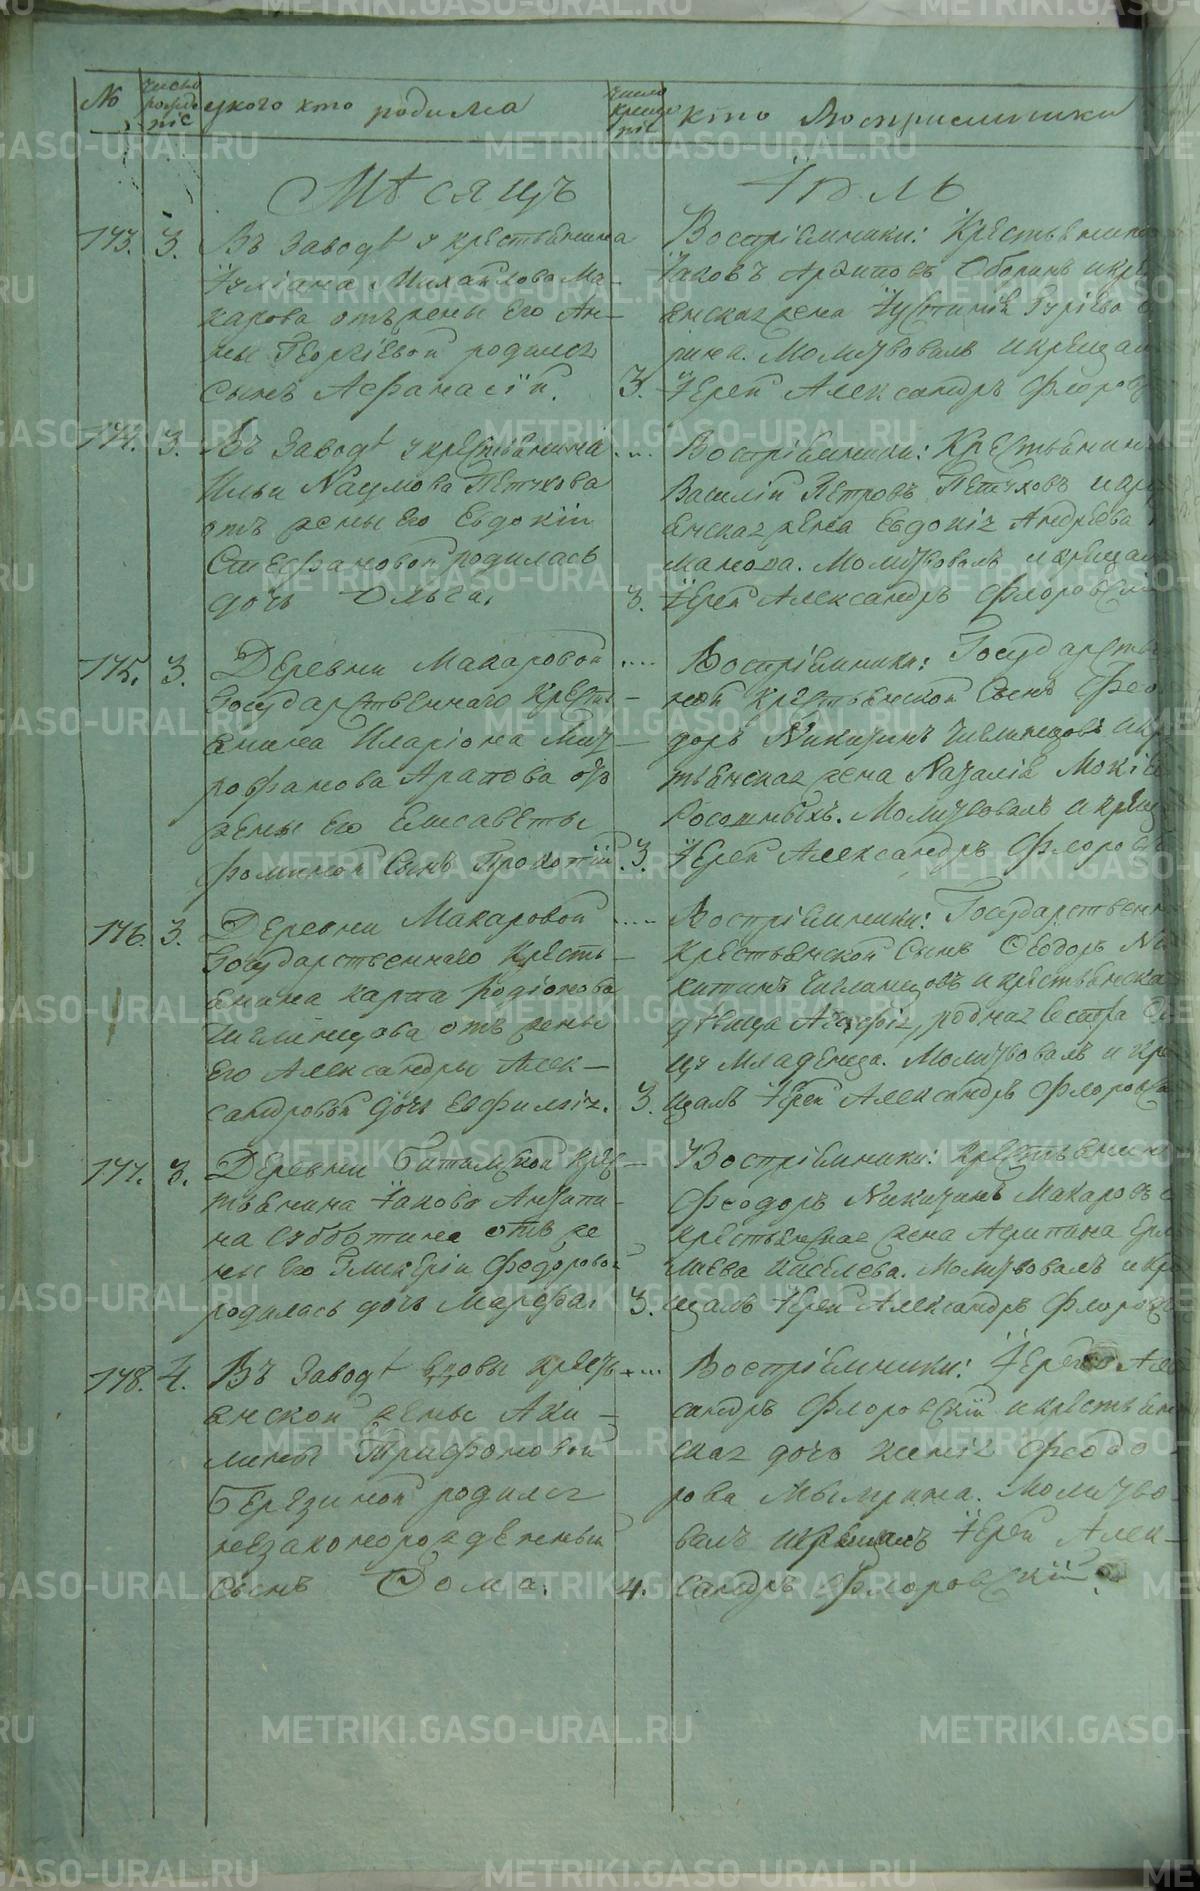 № число рожде нiе у кого кто родился число креще нiе кто восприемники
Мѣсяцъ Iюль
173. 3. Въ Заводѣ у крестьянина
Iулiана Михайлова Ма-
карова отъ жены его Ан-
ны Георгiевой родился
сынъ Афанасiй. 3.
Воспрiемники: Крестьянинъ
Iаковъ Архиповъ Оборинъ и кре
янская жена Iустинiя Гурiева
рина. Молитвовалъ и крещал
Iерей Александръ Флоров
174. 3. Въ Заводѣ у крестьянина
Ильи Наумова Петухова
отъ жены его Евдокiи
Стефановой родилась
дочь Ольга. 3.
Воспрiемники: Крестьянинъ
Василiй Петровъ Петуховъ и кре
янская жена Евдокiя Андреева
манова. Молитвовалъ и крещал
Iерей Александръ Флоровскiй
175. 3. Деревни Макаровой
Государственнаго кресть-
янина Иларiона Мит-
рофанова Арапова отъ
жены его Елисаветы
Фоминой сынъ Прокопiй 3.
Воспрiемники: Государствен
ной крестьянской сынъ Фео
доръ Никитинъ Чиглинцовъ и кр
тьянская жена Наталiя Мокiе
Молитвовалъ и креща
Iерей Александръ Флоров
176. 3. Деревни Макаровой
Государственнаго кресть-
янина Карпа Родiонова
Чиглинцова отъ жены
его Александры Алек-
сандровой дочь Евфимiя. 3.
Воспрiемники: Государственн
крестьянской сынъ Феодоръ Ни
китинъ Чиглинцовъ и крестьянска
дѣвица Агафiя, родная сестра
цу младенца. Молитвовалъ и кре
щалъ Iерей Александръ Флоровск
177. 3. Деревни Битимской крес-
тьянина Iакова Антипи-
на Субботина отъ же
ны его Гликерiи Федоровой
родилась дочь Марфа. 3.
Воспрiемники: Крестьянин
Феодоръ Никитинъ Макаровъ
крестьянская жена Агрипина Ерм
Киселева. Молитвовалъ и кре
щалъ Iерей Александръ Флоровск
178. 4. Въ Заводѣ вдовы кресть
янской жены Аки-
лины Трифоновой
Березиной родился
незаконорожденный
сынъ Фома. 4.
Воспрiемники: Iерей Алек
сандръ Флоровскiй и крестьян
ская дочь Ксенiя Феодо-
рова Мымрина. Молитво-
валъ и крещалъ Iерей Алек-
сандръ Флоровскiй.
METRIKI.GASO-URAL.RU